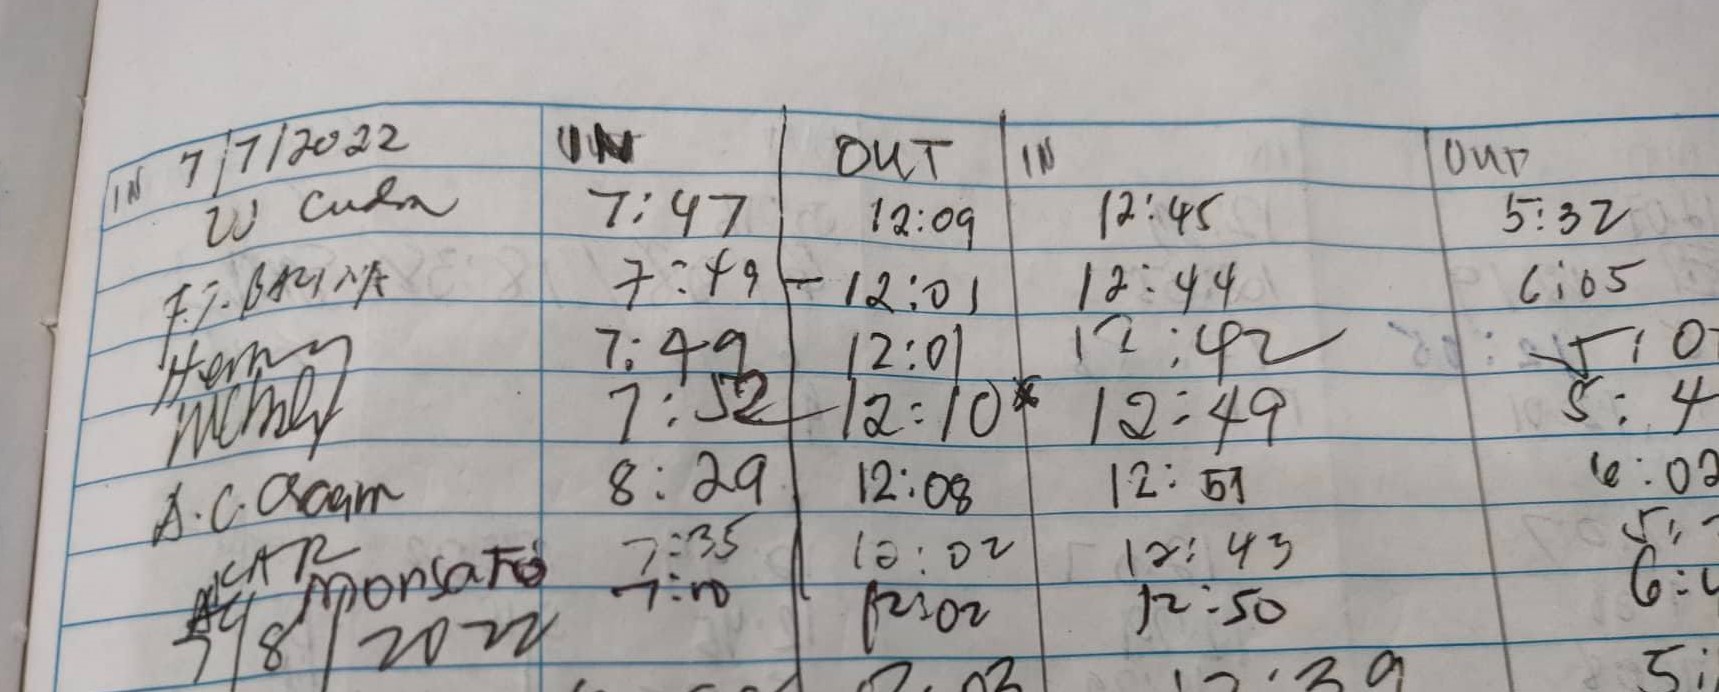 IN 7/7/2022 IN OUT IN OUT
W 7:47 12:09 12:45 5:32
F.J. 7:49 - 12:01 12:44 6:05
Henry 7:49 12:01 12:42 5:0
7:52 12:10* 12:49 5:4
A.C. 8:29 12:08 12:51 6:02
7:35 12:02 12:43 5:
Monsato 7:10 12:02 12:50 6:
7/8/2022
12:39 5: